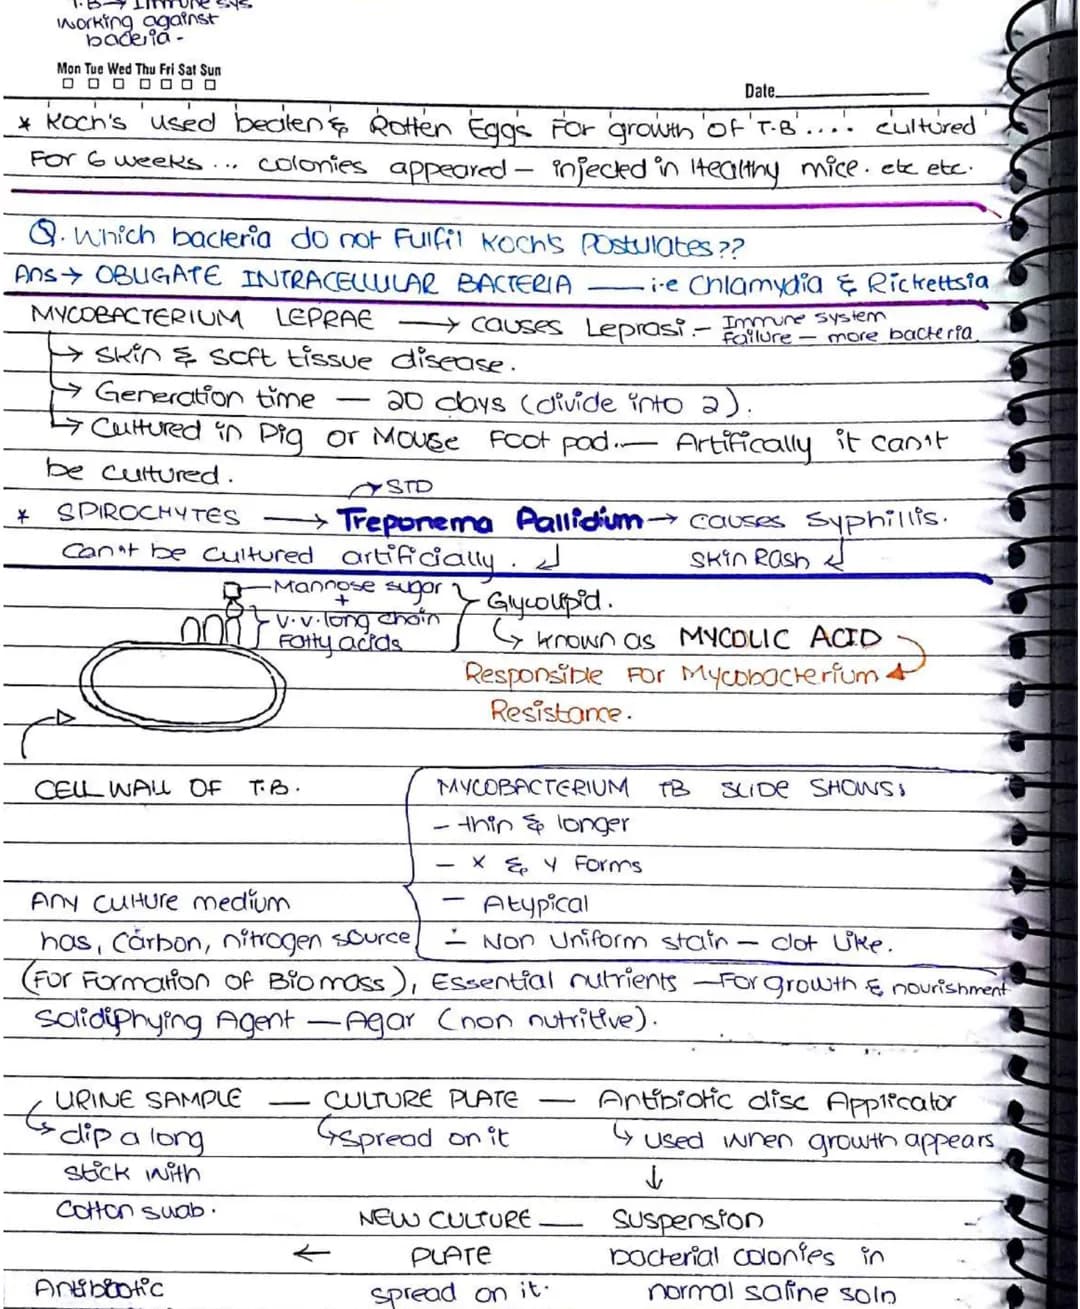 T.B → Immune sys
working against
bacteria -
Mon Tue Wed Thu Fri Sat Sun
Date
* Koch's used beaten & Rotten Eggs For growth of T.B .... cultured
For 6 weeks ... colonies appeared — injected in Healthy mice. etc etc.
Q. Which bacteria do not Fulfil Koch's Postulates ??
Ans → OBLIGATE INTRACELLULAR BACTERIA — i.e Chlamydia & Rickettsia
MYCOBACTERIUM LEPRAE → causes Leprasi. — Immune system
Failure — more bacteria
→ Skin & Soft tissue disease.
→ Generation time — 20 days (divide into 2).
→ Cultured in Pig or Mouse Foot pad. — Artifically it can't
be cultured.
→ STD
* SPIROCHYTES → Treponema Pallidium → causes Syphillis.
Can't be cultured artificially. ↲ Skin Rash ↲
Mannose sugar
+
v.v. long chain
Fatty acids
Glycolipid.
↳ known as MYCOLIC ACID
Responsible For Mycobacterium
Resistance.
CELL WALL OF T.B.
MYCOBACTERIUM TB SLIDE SHOWS:
- thin & longer
- X & Y Forms
- Atypical
- Non Uniform stain — dot like.
Any culture medium
has, carbon, nitrogen source
(For Formation of Biomass), Essential nutrients — For growth & nourishment
Solidiphying Agent — Agar (non nutritive).
URINE SAMPLE — CULTURE PLATE — Antibiotic disc Applicator
↳ dip a long ↳ spread on it ↳ used when growth appears
stick with ↓
Cotton swab.
NEW CULTURE — Suspension
← PLATE bacterial colonies in
Antibiotic spread on it. normal saline soln